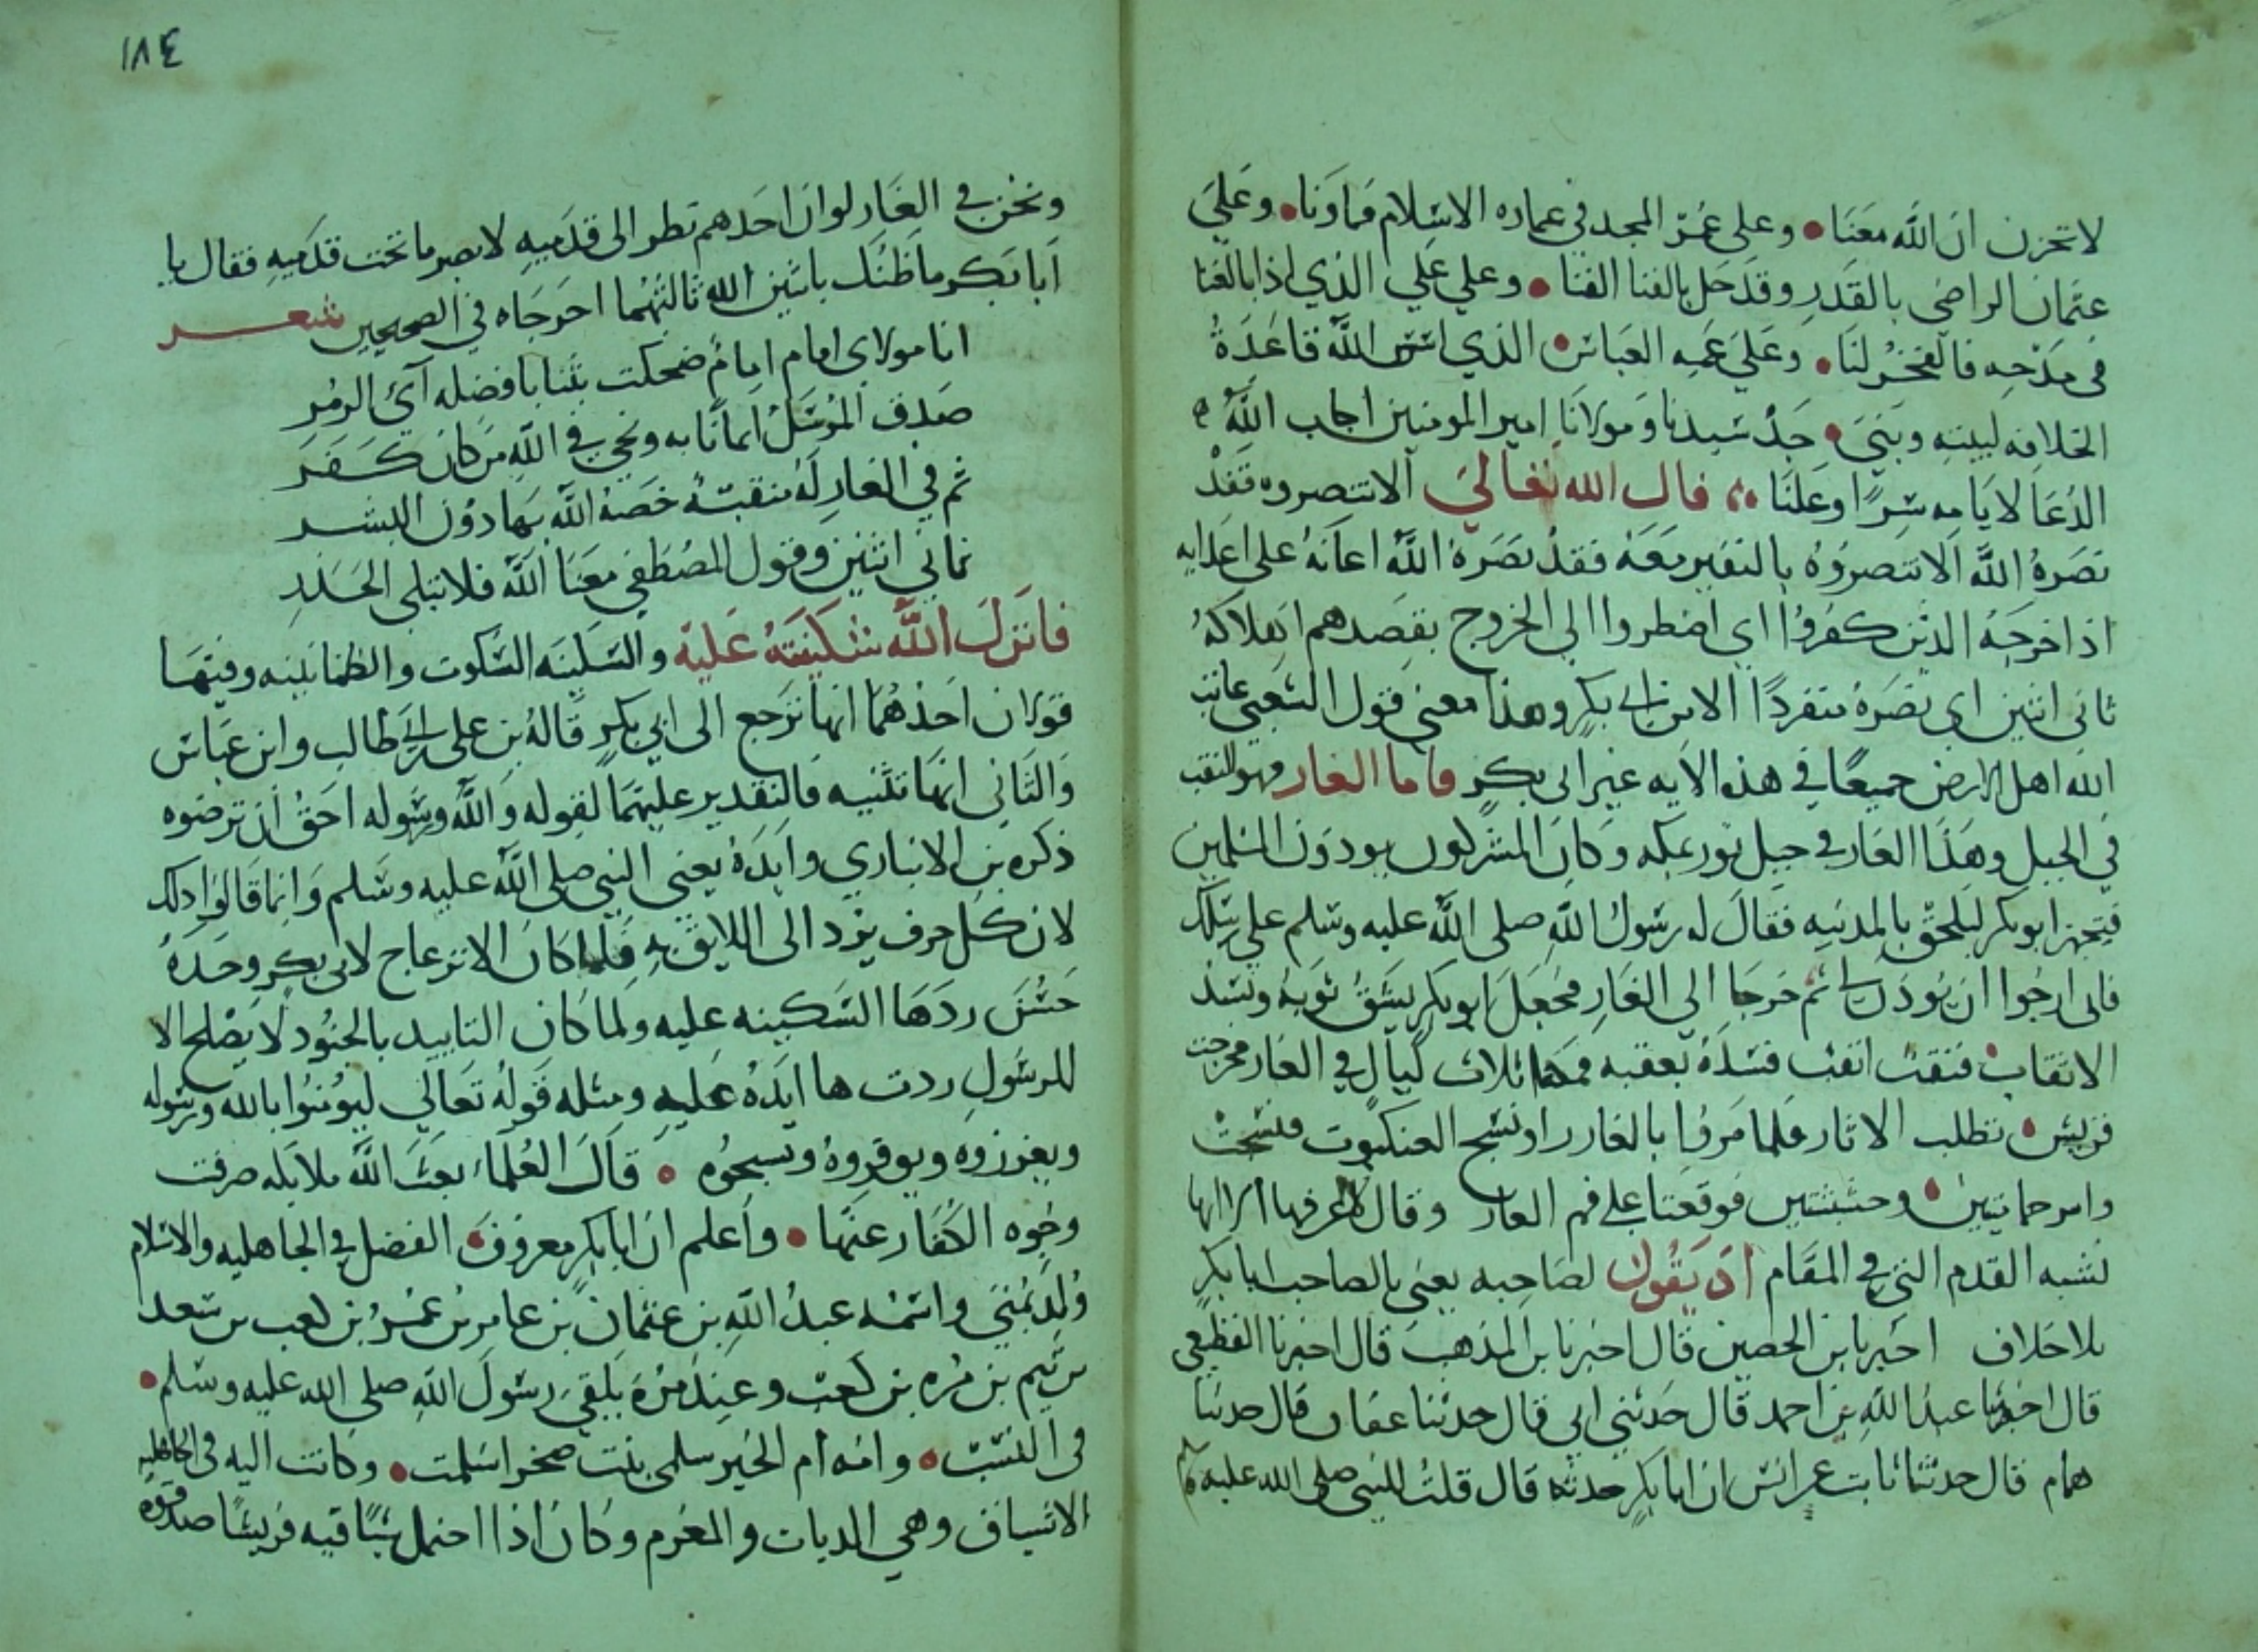 لا تحزن ان الله معنا • وعلى عمر المجد في عماره الاسلام فما ونا • وعلى
عثمان الراضي بالقدر وقد حل بالفنا الفنا • وعلي علي الذي اذا بالغنا
في مدحه فالفخر لنا • وعلى عمه العباس • الذي اسس الله قاعدة
الخلافه لبيته وبنى • جد سيدنا ومولانا امير المومنين اجاب الله
الدعا لايامه سرا وعلنا قال الله تعالى الا تنصروه فقد
نصره الله الا تنصروه بالنفير معه فقد نصره الله اعانه على اعدايه
اذ اخرجه الذين كفروا اي اضطروا الى الخروج بقصدهم اهلاكه
ثاني اثنين اي نصره منفردا الا من ابي بكر وهذا معنى قول الشعبي عاتب
الله اهل الارض جميعا في هذه الايه غير ابي بكر فاما الغار فهو النقب
في الجبل وهذا الغار في جبل ثور بمكه وكان المشركون يوذون المسلمين
فتجهز ابو بكر ليلحق بالمدينه فقال له رسول الله صلى الله عليه وسلم على رسلك
فاني ارجوا ان يوذن لي ثم خرجا الي الغار فجعل ابو بكر يشق ثوبه ويسد
الانقاب فنقت انقب فسده بعقبه فمكثا ثلاث ليال في الغار فخرجت
قريش • تطلب الاثار فلما مروا بالغار راو نسج العنكبوت فنسجت
وامر حمامتين • وحشيتين فوقعتا على فم الغار وقال
تشبه القدم التي في المقام اذ يقول لصاحبه يعني بالصاحب ابا بكر
بلا خلاف اخبرنا بن الحصين قال اخبرنا بن المذهب قال اخبرنا القطيعي
قال اخبرنا عبد الله بن احمد قال حدثني ابي قال حدثنا عفان قال حدثنا
همام قال حدثنا ثابت عن انس ان ابا بكر حدثه قال قلت للنبي صلى الله عليه وسلم
١٨٤
ونحن في الغار لو ان احدهم نظر الى قدميه لابصر ما تحت قدميه فقال يا
ابا بكر ما ظنك باثنين الله ثالثهما اخرجاه في الصحيحين شعر
انا مولاي امام امام ضحكت بثنايا فضله آي الزمر
صدق المرسل ايمانا به ونجي في الله من كان كفر
ثم في الغار له منقبة خصه الله بها دون البشر
ثاني اثنين وقول المصطفى معنا الله فلا تبلى الحذر
فانزل الله سكينته عليه والسكينه السكوت والطمانينه وفيها
قولان احدهما انها ترجع الى ابي بكر قاله بن علي بن ابي طالب وابن عباس
والثاني انها تثنيه فالتقدير عليهما لقوله والله ورسوله احق ان ترضوه
ذكره بن الانباري وايده يعني النبي صلى الله عليه وسلم وانما قالوا ذلك
لان كل حرف يرد الى اللايق به فلما كان الانزعاج لابي بكر وحده
حسن ردها السكينه عليه ولما كان التاييد بالجنود لا يصلح الا
للرسول ردت ها ايده عليه ومثله قوله تعالى ليومنوا بالله ورسوله
ويعزروه ويوقروه ويسبحوه • قال العلماء بعث الله ملايكه صرفت
وجوه الكفار عنها • واعلم ان ابا بكر معروف • الفضل في الجاهليه والاسلام
ولد بمنى واسمه عبد الله بن عثمان بن عامر بن عمر بن كعب بن سعد
بن تيم بن مره بن كعب وعند مرة يلتقي رسول الله صلى الله عليه وسلم •
في النسب • وامه ام الخير سلمى بنت صخر اسلمت • وكانت اليه في الجاهليه
الاشناق وهي الديات والمغرم وكان اذا احتمل شيا قيه قريشا صدقوه